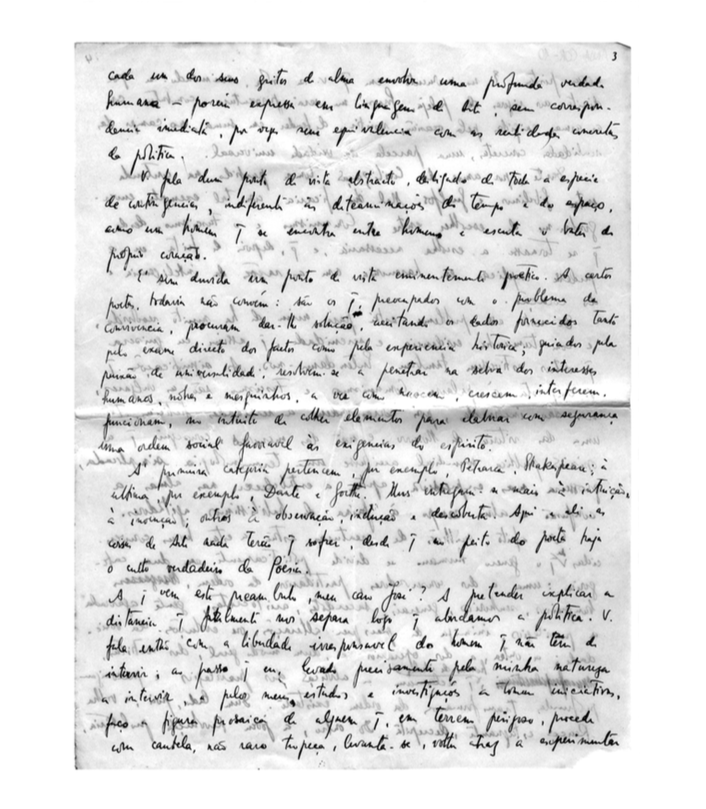 3
cada um dos seus gritos d'alma envolve uma profunda verdade
humana – porém expressa em linguagem de Arte, sem correspon-
dencia imediata, por vezes sem equivalencia com as realidades concretas
da politica.
V. fala dum ponto de vista abstracto, desligado de toda a especie
de contingencias, indiferente às determinações do tempo e do espaço,
como um homem q se encontra entre homens e escuta o bater do
proprio coração.
É sem duvida um ponto de vista eminentemente poetico. A certos
poetas, todavia não convém: são os q, preocupados com o problema da
convivencia, procuram dar-lhe solução, aceitando os dados fornecidos tanto
pelo exame directo dos factos como pela experiencia historica; guiados pela
paixão da universalidade, resolvem-se a penetrar na selva dos interesses
humanos, nobres e mesquinhos, a ver como nascem, crescem, interferem,
funcionam, no intuito de colher elementos para elaborar com segurança
uma ordem social favoravel às exigencias do espirito.
A' primeira categoria pertencem, por exemplo, Petrarca e Shakespeare; à
ultima, por exemplo, Dante e Goethe. Uns entregam-se mais à intuição,
à invenção; outros à observação, indução e descoberta. Aqui e ali, as
coisas de Arte nada terão q sofrer, desde q no peito do poeta haja
o culto verdadeiro da Poesia.
A q vem este preambulo, meu caro José? A pretender explicar a
distancia q fatalmente nos separa logo q abordamos a politica. V.
fala então com a liberdade irresponsavel do homem q não tem de
intervir; ao passo q eu, levado precisamente pela minha natureza
a intervir e pelos meus estudos e investigações a tomar iniciativas,
faço a figura prosaica de alguem q, em terreno perigoso, procede
com cautela, não raro tropeça, levanta-se, volta atraz a experimentar